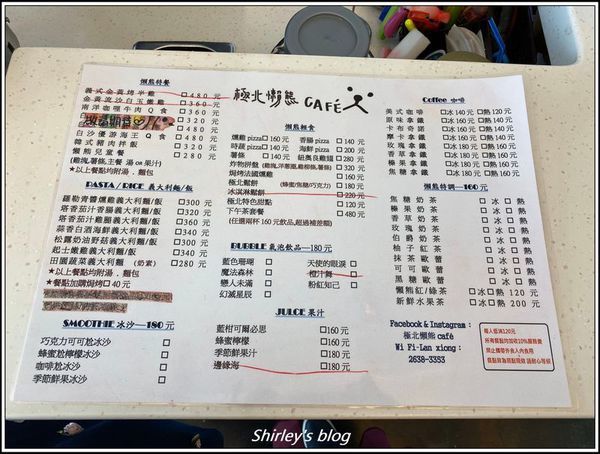 極北懶熊 CAFÉ
懶熊特餐
義式金黃烤半雞 □480元
金黃流沙白玉嫩雞 □360元
南洋咖哩牛肉Q食 □360元
白沙優游海王Q食
韓式豬肉拌飯 □280元
懶熊兒童餐 □280元
(雞塊,薯條,主餐 湯 or 果汁)
★以上餐點均附湯．麵包
PASTA/ RICE 義大利麵/飯
羅勒青醬燻雞義大利麵/飯 □300元
塔香茄汁香腸義大利麵/飯 □320元
塔香茄汁雞腿義大利麵/飯 □320元
蒜香白酒海鮮義大利麵/飯 □340元
松露奶油野菇義大利麵/飯 □350元
起士嫩雞義大利麵/飯 □340元
田園蔬菜義大利麵(奶素) □280元
★以上餐點均附湯．麵包
★餐點加購焗烤□40元
SMOOTHIE 冰沙—180元
巧克力可可尬冰沙
蜂蜜尬檸檬冰沙
咖啡尬冰沙
季節鮮果冰沙
懶熊輕食
燻雞 pizza□160元 香腸 pizza□140元
時蔬 pizza□140元 海鮮 pizza□200元
薯條 □140元 紐奧良雞翅 □280元
炸物拼盤 □200元
焗烤法國燻雞 □160元
極北鬆餅 (蜂蜜/焦糖/巧克力) □180元
冰淇淋鬆餅 □220元
極北特色甜點 □120元
下午茶套餐 □480元
(任選兩杯160元飲品,超過補差額)
BUBBLE 氣泡飲品—180元
藍色珊瑚 天使的眼淚
魔法森林 橙汁舞
戀人未滿 粉紅知己
幻滅星辰
JUICE 果汁
藍柑可爾必思 □160元
蜂蜜檸檬 □160元
季節鮮果汁 □180元
邊緣海 □180元
Coffee 咖啡
美式咖啡 □冰140元 □熱120元
原味拿鐵 □冰140元 □熱140元
卡布奇諾 □冰160元 □熱160元
摩卡拿鐵 □冰160元 □熱160元
玫瑰拿鐵 □冰180元 □熱180元
香草拿鐵 □冰160元 □熱160元
榛果拿鐵 □冰160元 □熱160元
懶熊特調—160元
焦糖奶茶 □冰 □熱
榛果奶茶 □冰 □熱
香草奶茶 □冰 □熱
玫瑰奶茶 □冰 □熱
伯爵奶茶 □冰 □熱
柚子紅茶 □冰 □熱
抹茶歐蕾 □冰 □熱
可可歐蕾 □冰 □熱
黑糖歐蕾 □冰 □熱
懶熊紅/綠茶 □冰 □熱 120元
新鮮水果茶 □冰 □熱 200元
Facebook & Instagram：
極北懶熊 café
Wi Fi-Lan xiong：
2638-3333
每人低消120元
所有餐點均加收10%服務費
禁止攜帶外食入內食用
Shirley's blog